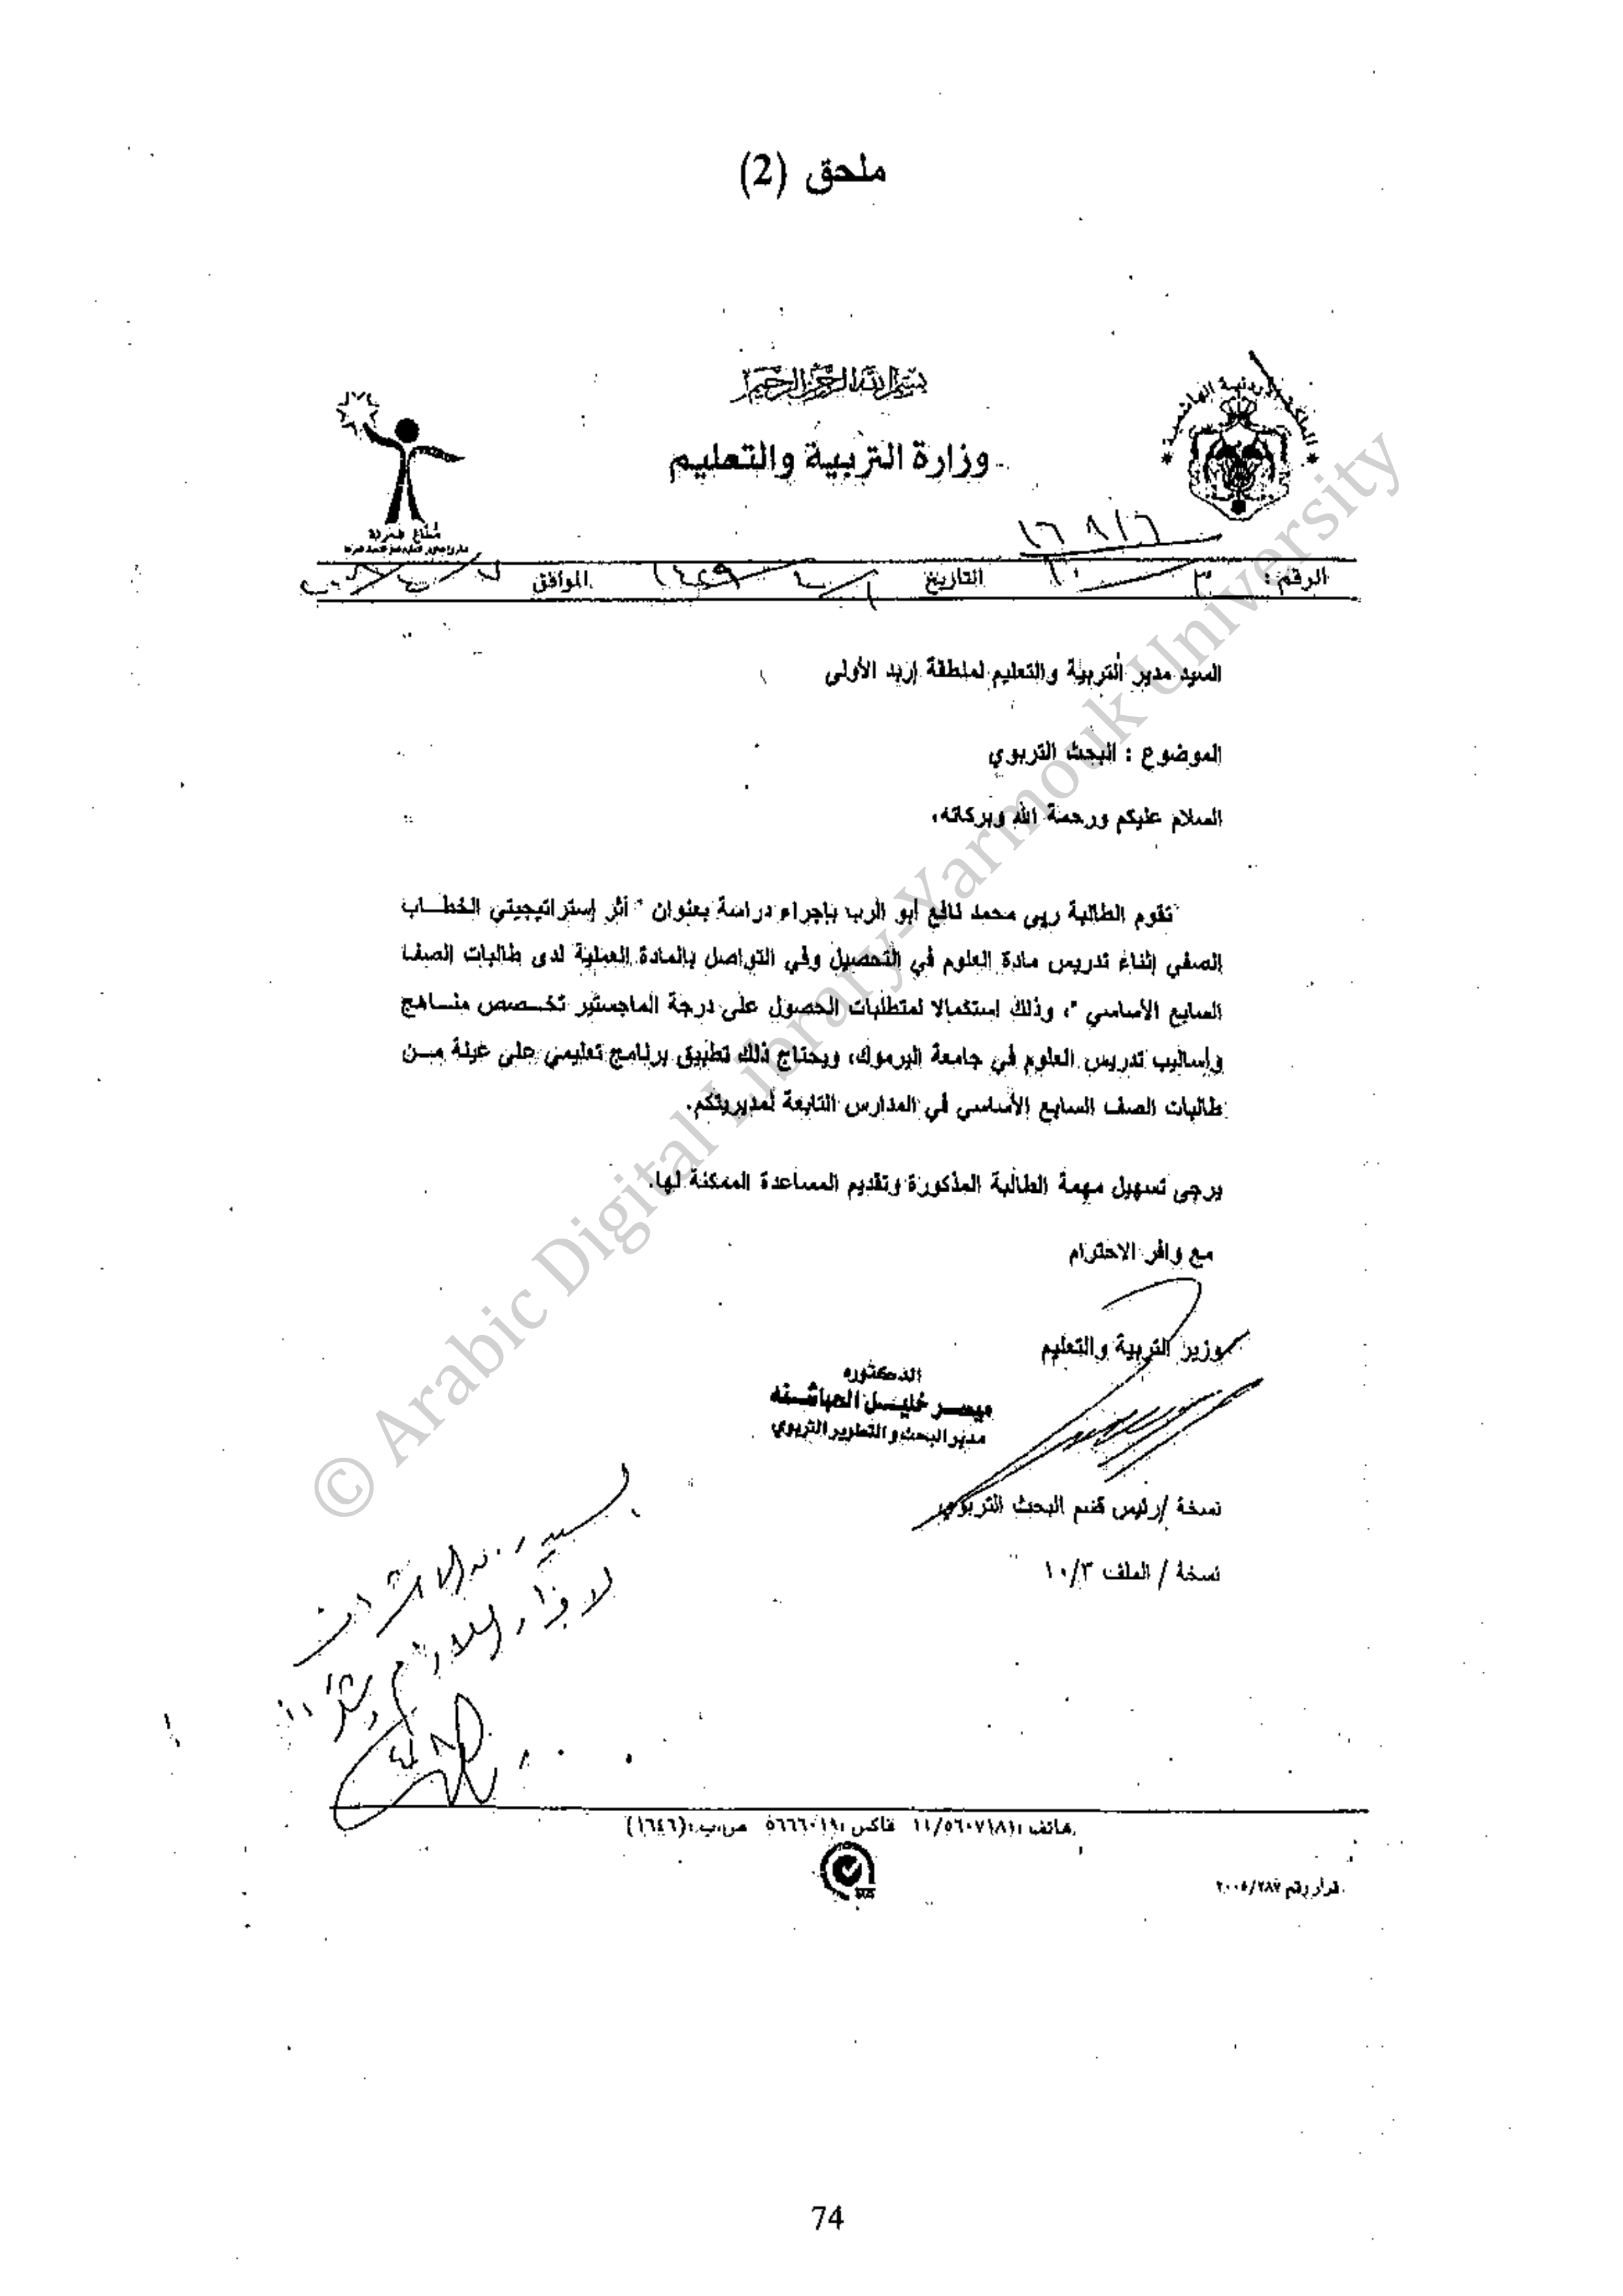 ملحق (2)
بسم الله الرحمن الرحيم
المملكة الأردنية الهاشمية
وزارة التربية والتعليم
١٦٩١٦
الرقم: ٣ / ١٠ التاريخ ١٤٢٩ الموافق
السيد مدير التربية والتعليم لمنطقة إربد الأولى
الموضوع : البحث التربوي
السلام عليكم ورحمة الله وبركاته،
تقوم الطالبة ربى محمد نافع أبو الرب بإجراء دراسة بعنوان " أثر إستراتيجيتي الخطــاب
الصفي إثناء تدريس مادة العلوم في التحصيل وفي التواصل بالمادة العملية لدى طالبات الصف
السابع الأساسي "، وذلك استكمالا لمتطلبات الحصول على درجة الماجستير تخــصص منــاهج
وأساليب تدريس العلوم في جامعة اليرموك، ويحتاج ذلك تطبيق برنامج تعليمي على عينة مــن
طالبات الصف السابع الأساسي في المدارس التابعة لمديريتكم.
يرجى تسهيل مهمة الطالبة المذكورة وتقديم المساعدة الممكنة لها.
مع وافر الاحترام
وزير التربية والتعليم
الدكتوره
ميسر خليل الحباشنه
مدير البحث والتطوير التربوي
نسخة /رئيس قسم البحث التربوي
نسخة / الملف ١٠/٣
لاجراء اللازم وشكرا
هاتف :١١/٥٦٠٧١٨١ فاكس :٥٦٦٦٠١٩ ص.ب :(١٦٤٦)
قرار رقم ٢٠٠٥/٢٨٧
© Arabic Digital Library-Yarmouk University
74